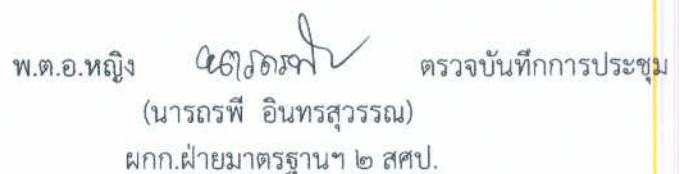 พ.ต.อ.หญิง ตรวจบันทึกการประชุม
(นารถรพี อินทรสุวรรณ)
ผกก.ฝ่ายมาตรฐานฯ ๒ สศป.